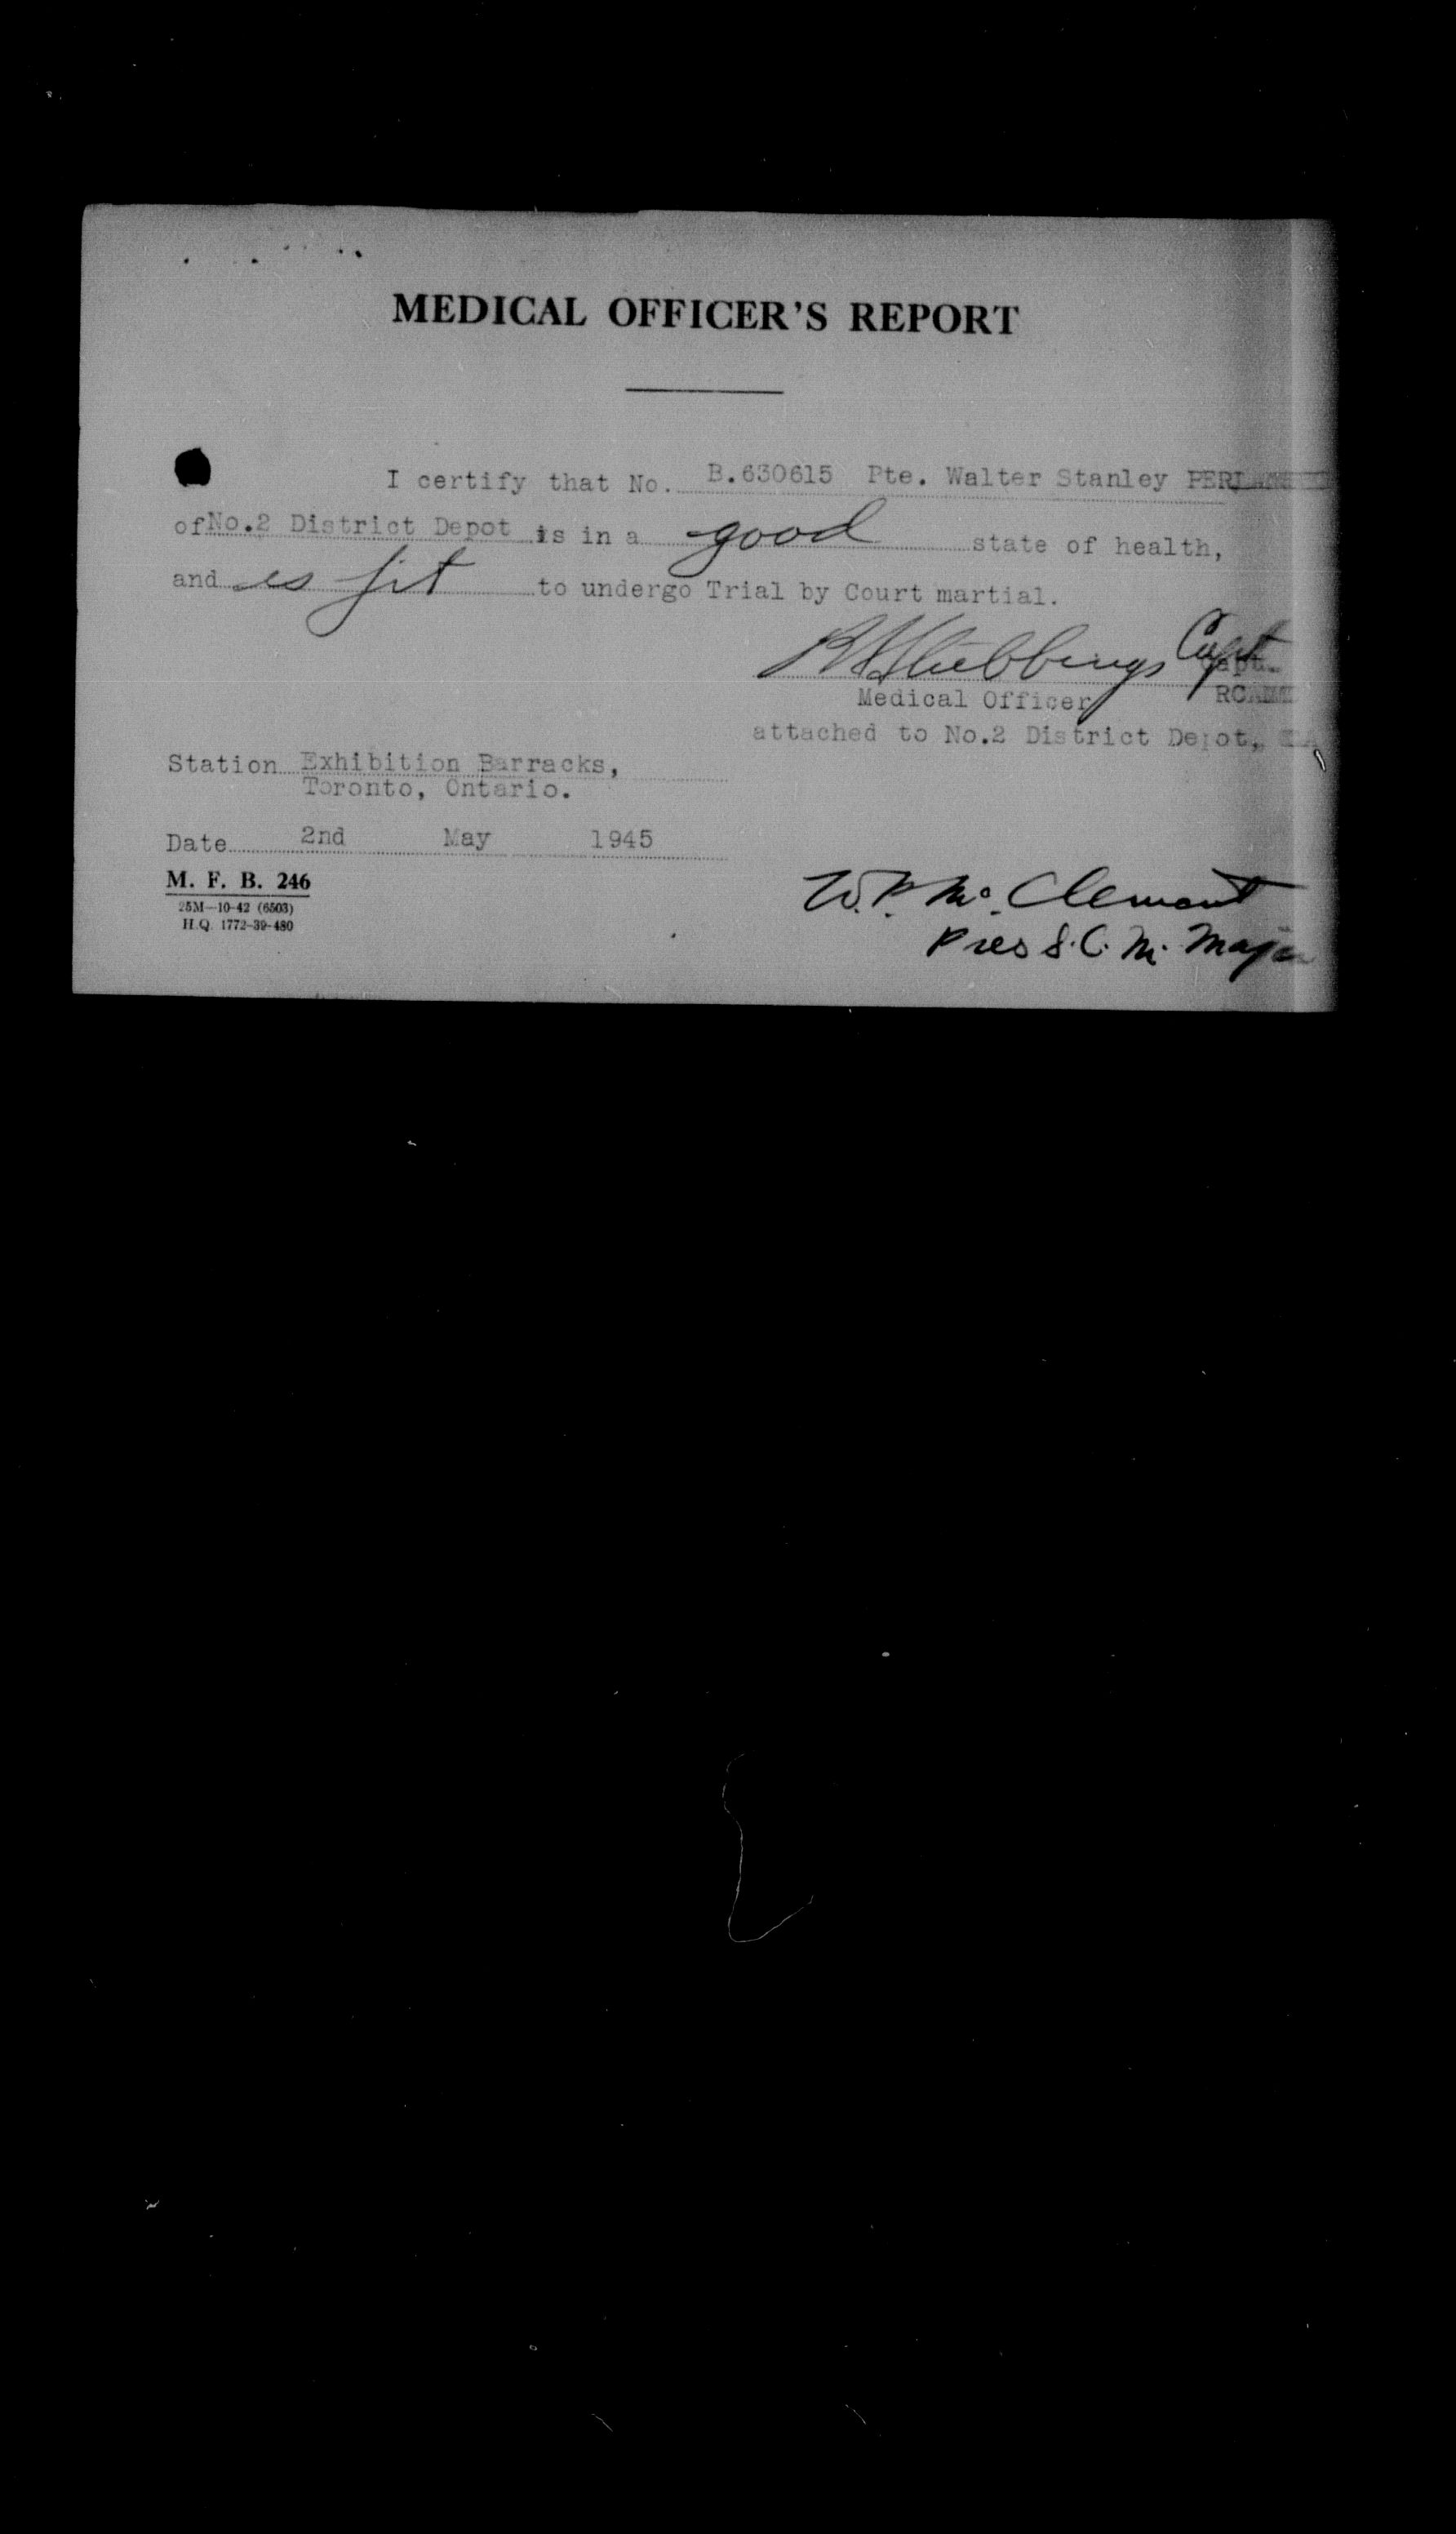 MEDICAL OFFICER'S REPORT
I certify that No. B.630615 Pte. Walter Stanley
of No.2 District Depot is in a good state of health,
and is fit to undergo Trial by Court martial.
Stubbings Capt
Capt.
Medical Officer
attached to No.2 District Depot,
Station Exhibition Barracks,
Toronto, Ontario.
Date 2nd May 1945
M. F. B. 246
25M-10-42 (6503)
H.Q. 1772-39-480
W.P. McClement
Pres S.C.M. Major